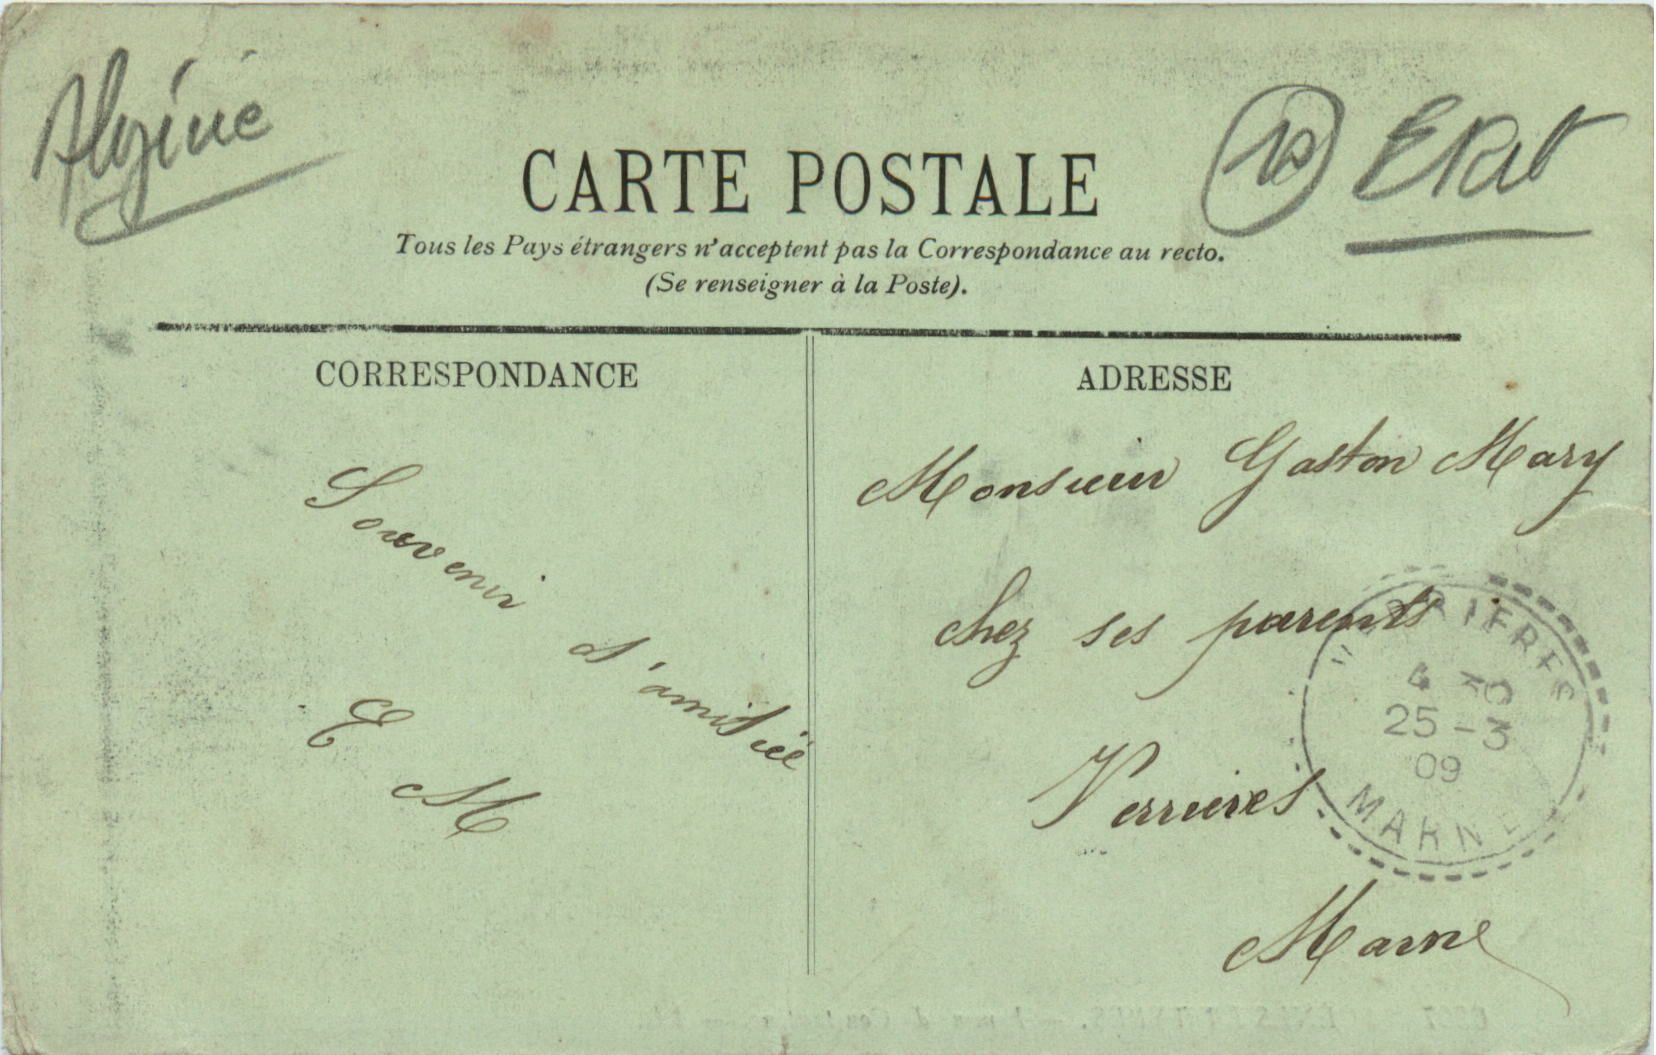 Algérie
10 Etat
CARTE POSTALE
Tous les Pays étrangers n'acceptent pas la Correspondance au recto.
(Se renseigner à la Poste).
CORRESPONDANCE
Souvenir
d'amitié
E M
ADRESSE
Monsieur Gaston Mary
chez ses parents
Verrières
Marne
VERRIERES
4 30
25-3
09
MARNE